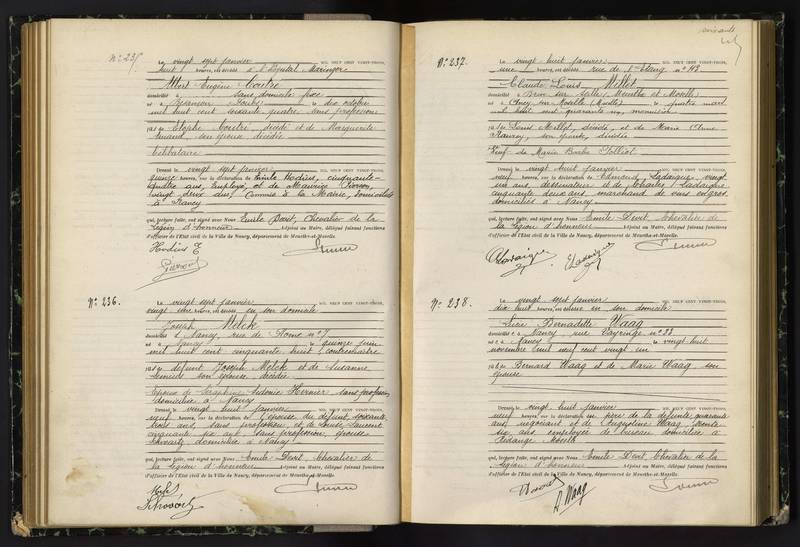 N° 235
Le vingt sept janvier MIL NEUF CENT VINGT-TROIS,
huit heures, est décédé à l'hôpital Maringer
Albert Eugène
domicilié à sans domicile fixe
né à Besançon Doubs le dix octobre
mil huit cent soixante quatre, sans profession
fils de décédé et de Marguerite
son épouse, décédée
Célibataire
Dressé le vingt sept janvier MIL NEUF CENT VINGT-TROIS,
quinze heures, sur la déclaration de Emile Hodius, cinquante
quatre ans, employé, et de Maurice
vingt deux ans, Commis à la Mairie, domiciliés
à Nancy
qui, lecture faite, ont signé avec Nous Emile Devit, Chevalier de la
Légion d'honneur Adjoint au Maire, délégué faisant fonctions
d'officier de l'État civil de la Ville de Nancy, département de Meurthe-et-Moselle.
Hodius E
N° 236.
Le vingt sept janvier MIL NEUF CENT VINGT-TROIS,
vingt une heures, est décédé en son domicile
Joseph Melck
domicilié à Nancy, rue de n° 7
né à Nancy le quinze juin
mil huit cent cinquante huit, contremaître
fils de défunt Joseph Melck et de Susanne
son épouse décédée
Epoux de Séraphine Antonie Hermier, sans profession
domiciliée à Nancy
Dressé le vingt huit janvier MIL NEUF CENT VINGT-TROIS,
neuf heures, sur la déclaration de l'épouse du défunt, soixante
trois ans, sans profession, et de Louise Laurent
cinquante six ans, sans profession, épouse
Schwartz domiciliée à Nancy
qui, lecture faite, ont signé avec Nous Emile Devit, Chevalier de
la Légion d'honneur Adjoint au Maire, délégué faisant fonctions
d'officier de l'État civil de la Ville de Nancy, département de Meurthe-et-Moselle.
soixante
N° 237.
Le vingt huit janvier MIL NEUF CENT VINGT-TROIS,
une heures, est décédé rue de l'Etang n° 43
Claude Louis Millot
domicilié à Brin sur Seille (Meurthe et Moselle)
né à (Moselle) le quatre mars
mil huit cent quarante
fils de Louis Millot, décédé, et de Marie Anne
son épouse, décédée
Veuf de Marie Barbe
Dressé le vingt huit janvier MIL NEUF CENT VINGT-TROIS,
neuf heures, sur la déclaration de Edmond Ladaigue, vingt
six ans, dessinateur et de Charles Ladaigue
cinquante deux ans, marchand de vins en gros
domiciliés à Nancy
qui, lecture faite, ont signé avec Nous Emile Devit, Chevalier de
la Légion d'honneur Adjoint au Maire, délégué faisant fonctions
d'officier de l'État civil de la Ville de Nancy, département de Meurthe-et-Moselle.
N° 238.
Le vingt sept janvier MIL NEUF CENT VINGT-TROIS,
dix huit heures, est décédée en son domicile
Lucie Bernadette Waag
domiciliée à Nancy rue Vayringe n° 33
née à Nancy le vingt huit
novembre mil neuf cent vingt un
fille de Bernard Waag et de Marie Waag son
épouse
Dressé le vingt huit janvier MIL NEUF CENT VINGT-TROIS,
neuf heures, sur la déclaration du père de la défunte quarante
ans, négociant et de Augustine Waag, trente
six ans, employée de bureau domiciliée à
Moselle
qui, lecture faite, ont signé avec Nous Emile Devit, Chevalier de la
Légion d'honneur Adjoint au Maire, délégué faisant fonctions
d'officier de l'État civil de la Ville de Nancy, département de Meurthe-et-Moselle.
A. Waag